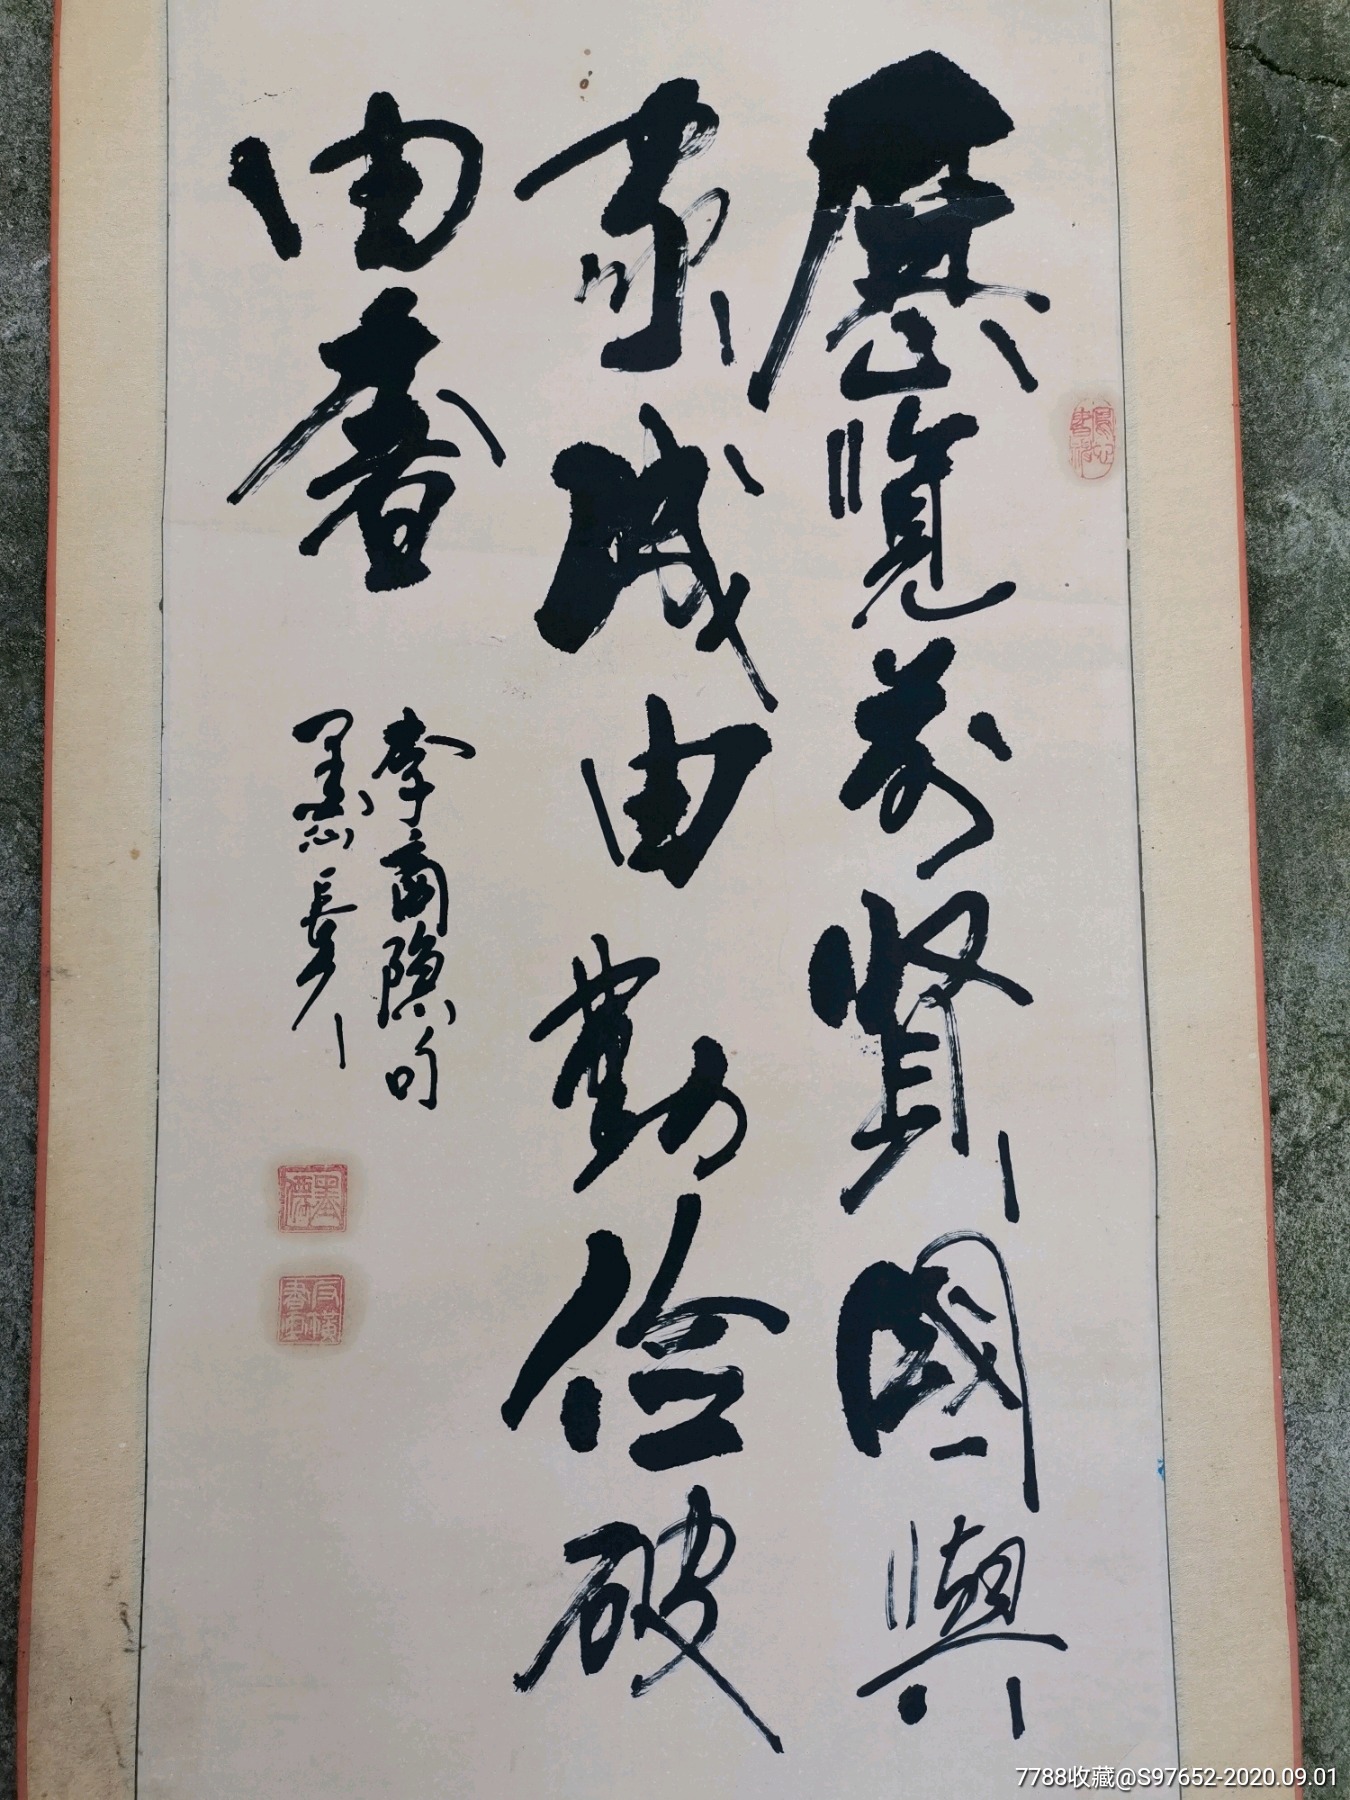 歷覽前賢國與
家成由勤俭破
由奢
李商隐句
墨仙
7788收藏@S97652-2020.09.01